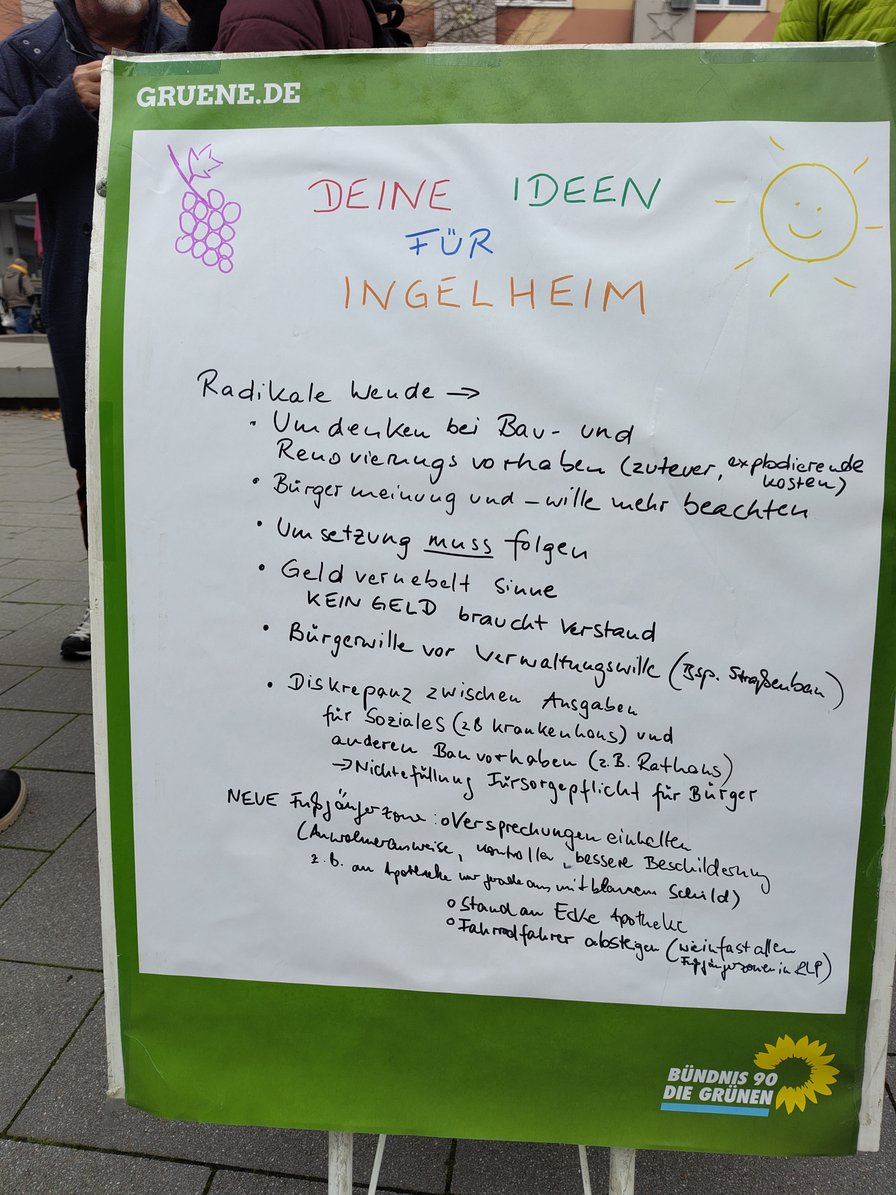 GRUENE.DE
DEINE IDEEN
FÜR
INGELHEIM
Radikale Wende →
• Umdenken bei Bau- und
Renovierungsvorhaben (zuteuer, explodierende
kosten)
• Bürgermeinung und -wille mehr beachten
• Umsetzung muss folgen
• Geld vernebelt Sinne
KEIN GELD braucht Verstand
• Bürgerwille vor Verwaltungswille (Bsp. Straßenbau)
• Diskrepanz zwischen Ausgaben
für Soziales (zB Krankenhaus) und
anderen Bauvorhaben (z.B. Rathaus)
→ Nichtefüllung Fürsorgepflicht für Bürger
NEUE Fußgängerzone: o Versprechungen einhalten
(Anwohnerausweise, Kontrollen, bessere Beschilderung
z.B. an Apotheke nur geradeaus mit blauem Schild)
o Stand an Ecke Apotheke
o Fahrradfahrer absteigen (wie in fast allen
Fußgängerzonen in RLP)
BÜNDNIS 90
DIE GRÜNEN